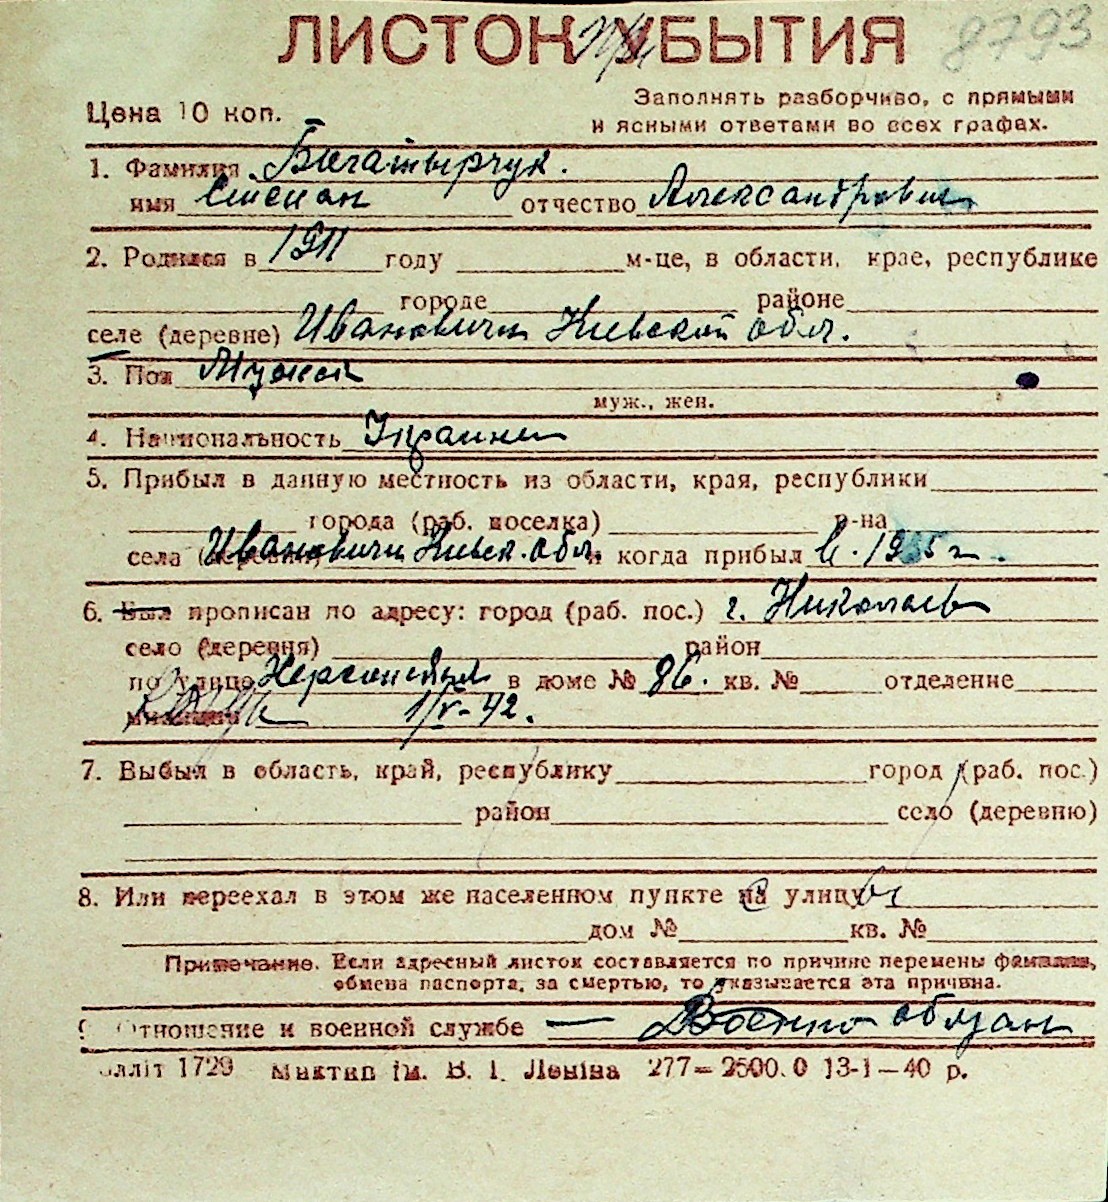 ЛИСТОК УБЫТИЯ При 8793
Цена 10 коп.
Заполнять разборчиво, с прямыми
и ясными ответами во всех графах.
1. Фамилия Богатырчук.
имя Степан отчество Александрович
2. Родился в 1911 году м-це, в области, крае, республике
городе районе
селе (деревне) Ивановичи Киевской обл.
3. Пол Мужской
муж., жен.
4. Национальность Украинец
5. Прибыл в данную местность из области, края, республики
города (раб. поселка) р-на
села (деревни) Ивановичи Киевск. обл. и когда прибыл в 1935 г.
6. Был прописан по адресу: город (раб. пос.) г. Николаев
село (деревня) район
по улице Херсонская в доме № 86. кв. № отделение
милиции 1/V-42.
7. Выбыл в область, край, республику город (раб. пос.)
район село (деревню)
8. Или переехал в этом же населенном пункте на улицу
дом № кв. №
Примечание. Если адресный листок составляется по причине перемены фамилии,
обмена паспорта, за смертью, то указывается эта причина.
9. Отношение к военной службе — Военнообязан
Облліт 1729 Миктип ім. В. І. Леніна 277—2500.0 13-1—40 р.